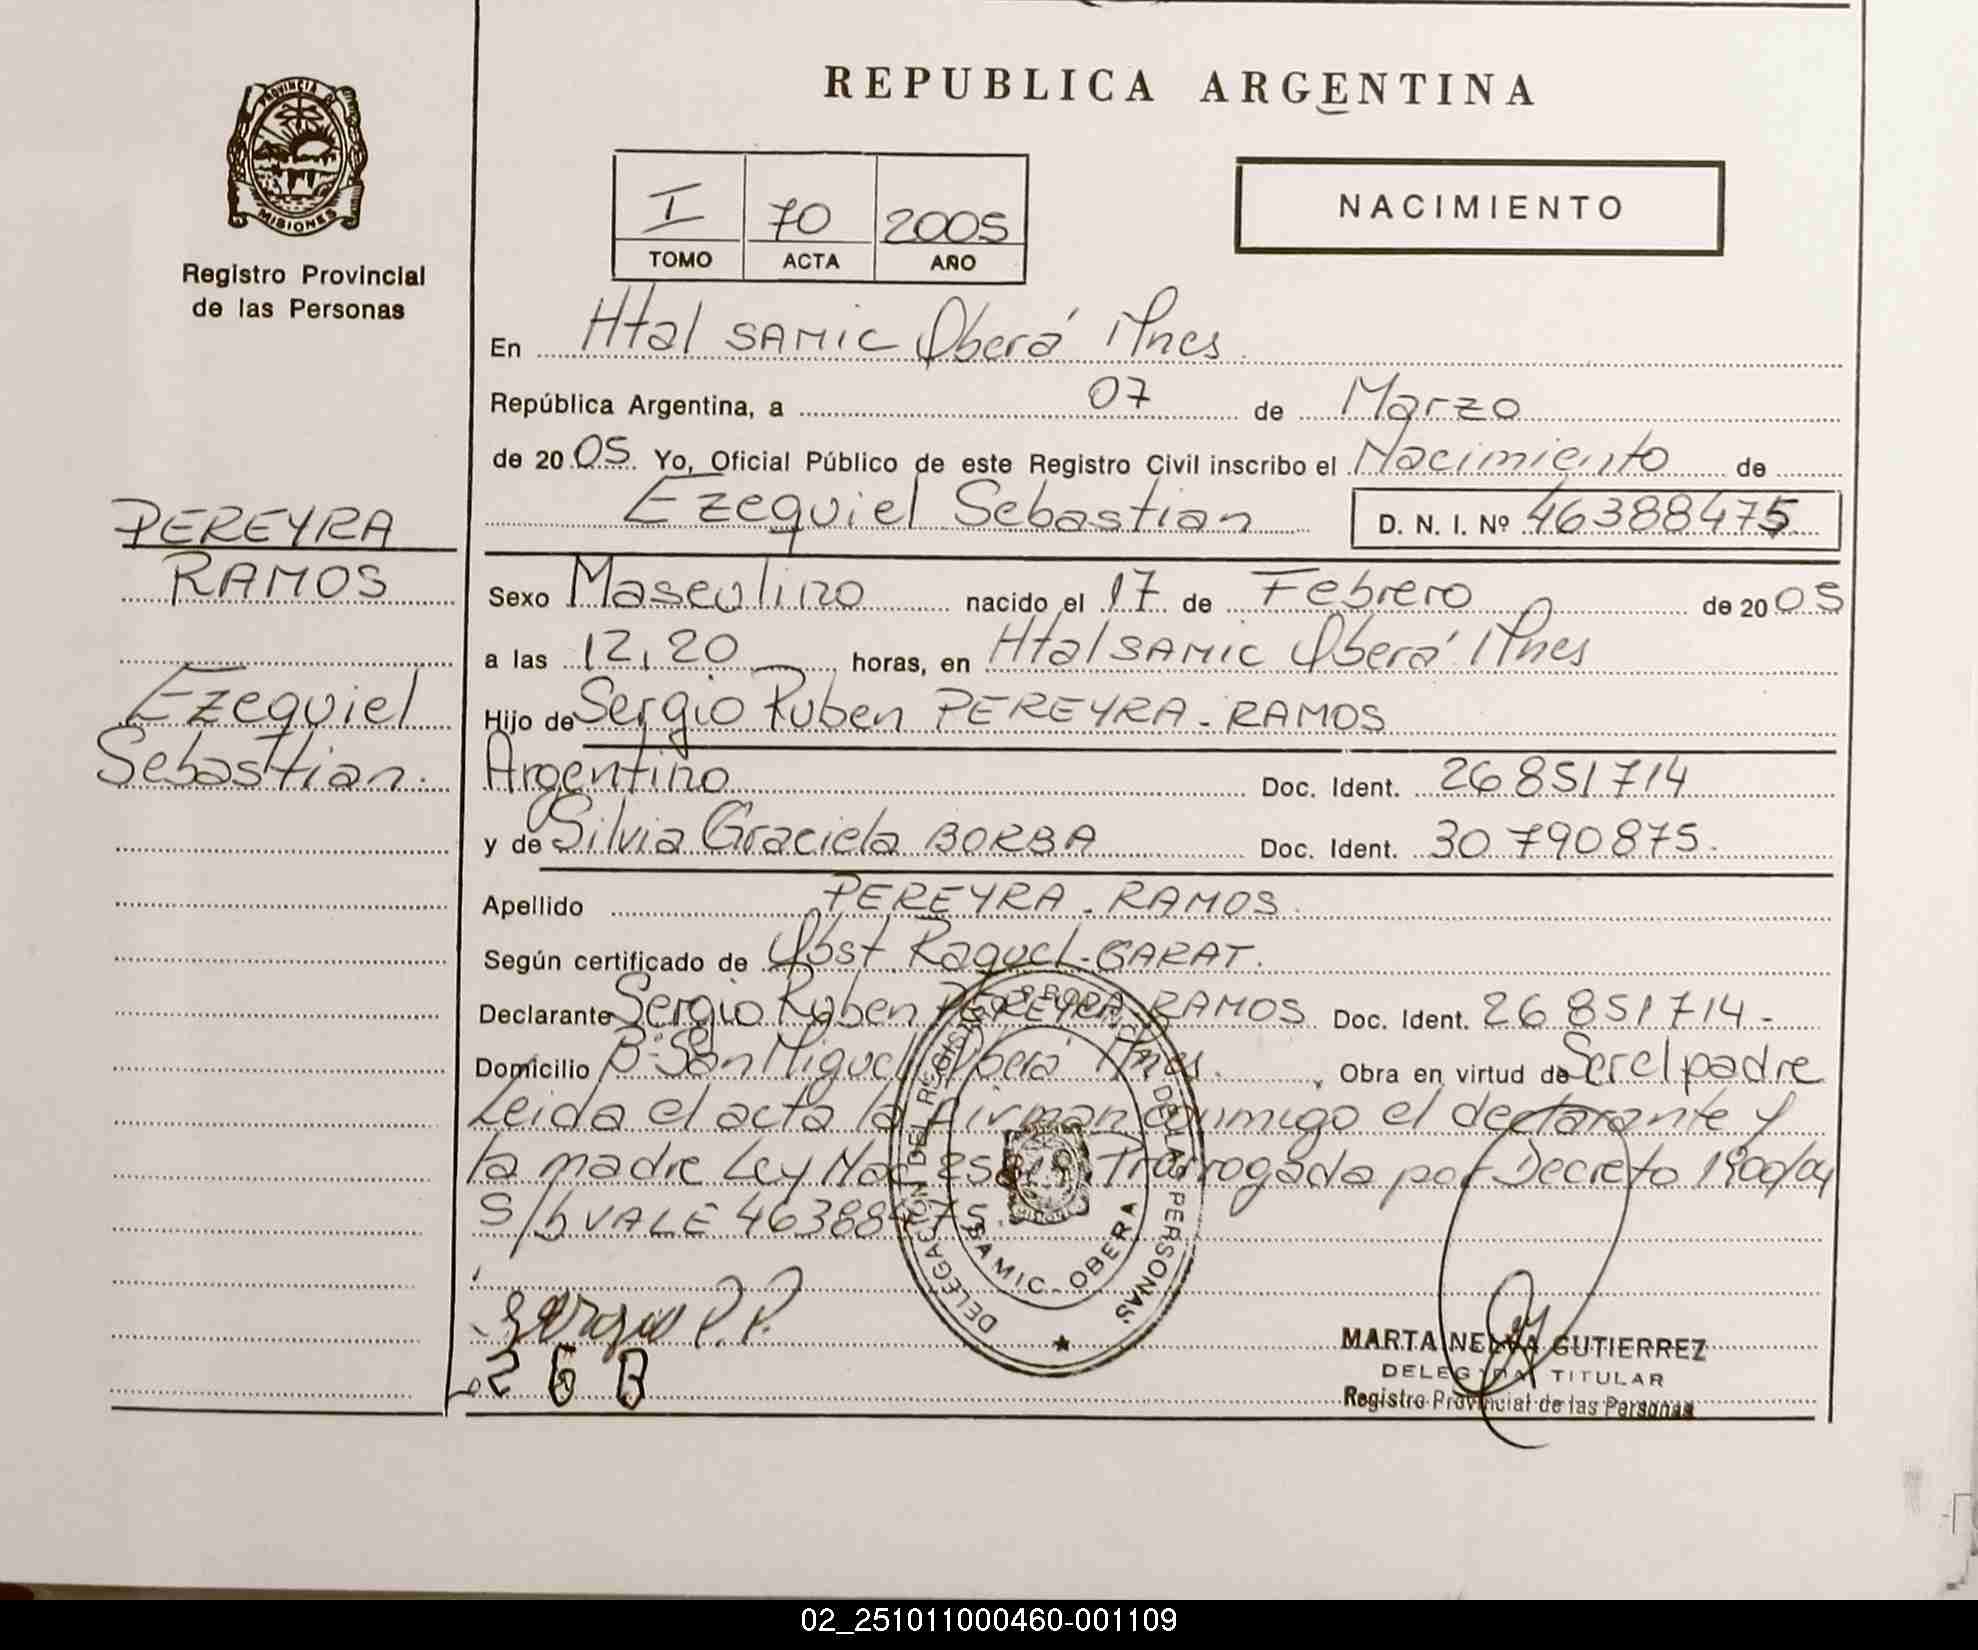 REPUBLICA ARGENTINA
PROVINCIA DE
MISIONES
Registro Provincial
de las Personas
I 70 2005
TOMO ACTA AÑO
NACIMIENTO
En Htal SAMIC Oberá Mnes
República Argentina, a 07 de Marzo
de 2005. Yo, Oficial Público de este Registro Civil inscribo el Nacimiento de
Ezequiel Sebastian D. N. I. Nº 46388475
PEREYRA
RAMOS
Ezequiel
Sebastian.
Sexo Masculino nacido el 17 de Febrero de 2005
a las 12,20 horas, en Htal SAMIC Oberá Mnes
Hijo de Sergio Ruben PEREYRA - RAMOS
Argentino Doc. Ident. 26 851 714
y de Silvia Graciela BORBA Doc. Ident. 30 790 875.
Apellido PEREYRA - RAMOS.
Según certificado de Obst Raquel - GARAT.
Declarante Sergio Ruben PEREYRA RAMOS Doc. Ident. 26 851 714 -
Domicilio Bº San Miguel Oberá Mnes. , Obra en virtud de Ser el padre
Leida el acta la firman conmigo el declarante y
la madre Ley Nac por Decreto 1900/04
S/b VALE 46388475.
DELEGACION DEL REGISTRO PROVINCIAL DE LAS PERSONAS
SAMIC - OBERA
Sergio P. P.
MARTA NELVA GUTIERREZ
DELEGADA TITULAR
Registro Provincial de las Personas
02_251011000460-001109